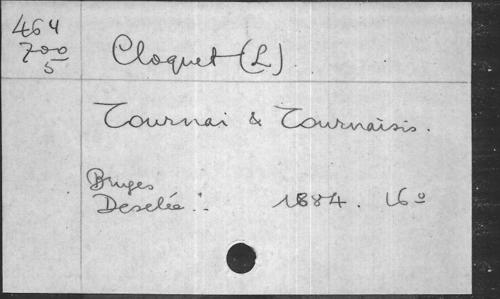 464
700
5
Cloquet (L).
Tournai & Tournaisis.
Bruges
Desclée : 1884. 16º